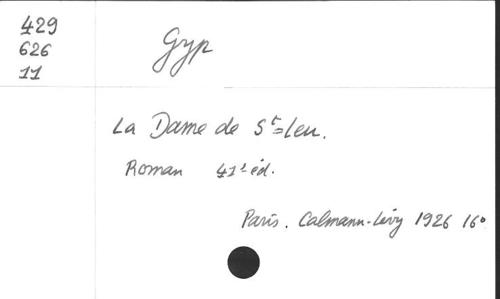 429
626
11
Gyp
La Dame de S^t=Leu.
Roman 41^e éd.
Paris. Calmann-Lévy 1926 16°